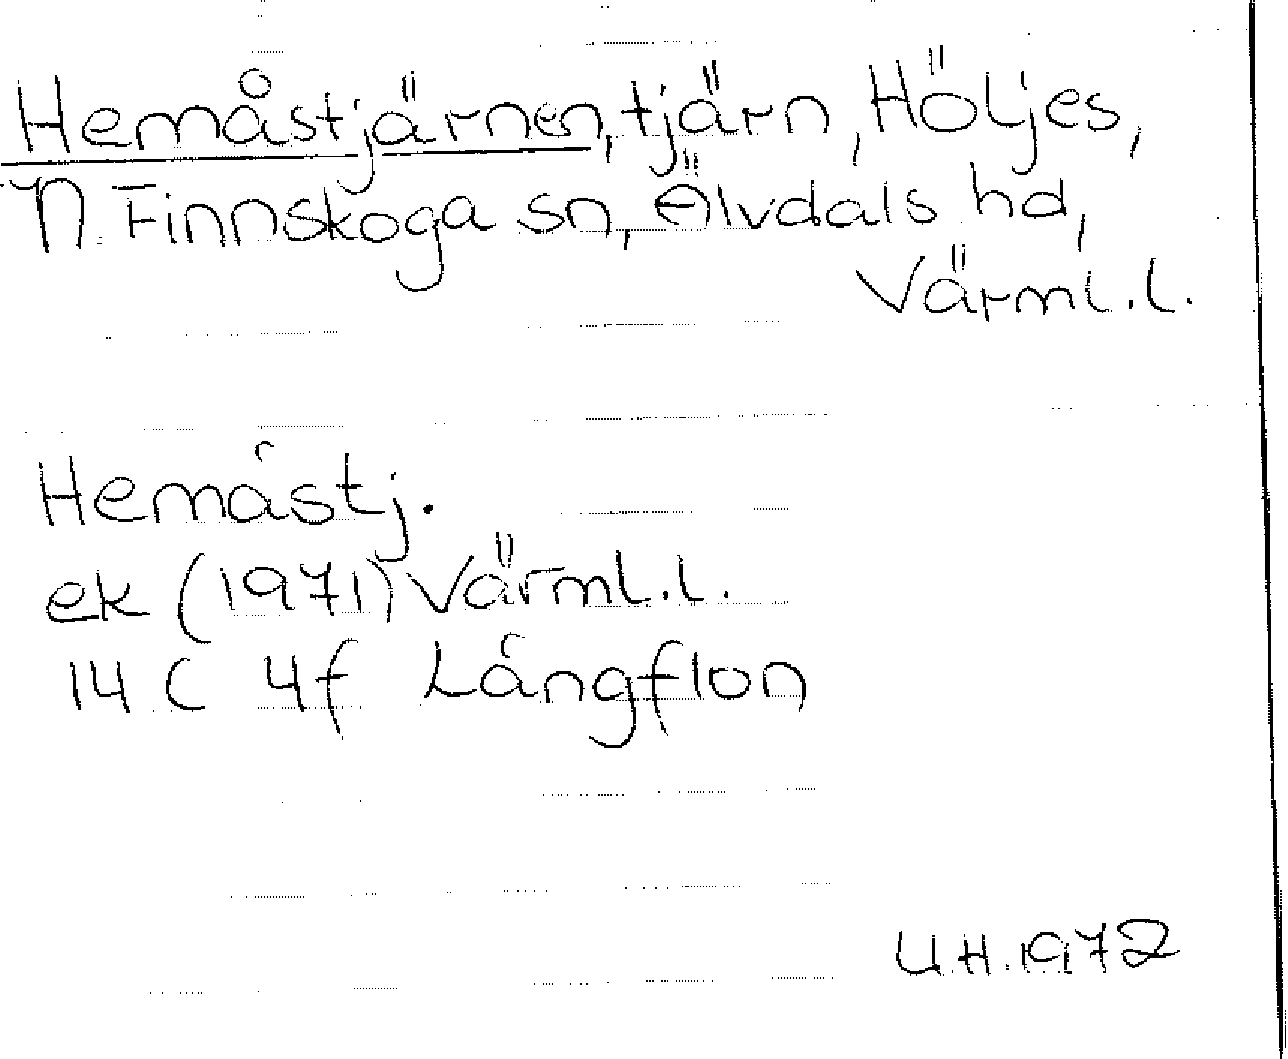 Hemåstjärnen, tjärn, Höljes,
N. Finnskoga sn, Älvdals hd,
Värml.l.
Hemåstj.
ek (1971) Värml.l.
14 C 4f Långflon
U.H. 1972